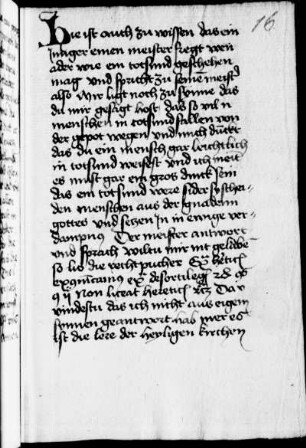 16
Hie ist auch zu wissen das ein
Junger einen meister fregt wen
ader wie ein totsund geschehen
mag vnd spricht zu seinem meister
also Mir ligt noch zu synne das
du mir gesagt host das so vil n
menschen in totsund fallen von
der gepot wegen vnd mich dunckt
das du ein mensch gar leichtlich
in totsund weysest vnd ich mein
es must gar ein gros dinck sein
das ein totsund were sider sy schei
den menschen aus der gnaden
gottes vnd seczen in in ewige ver
dampnus Der meister antwort
vnd sprach wiltu mir nit gelaube
so lis die recht pucher
de sortileg
q ij Non liceat Da
vindestu das ich nicht aus eigen
synnen geantwort hab wer es
ist die lere der heyligen kirchen